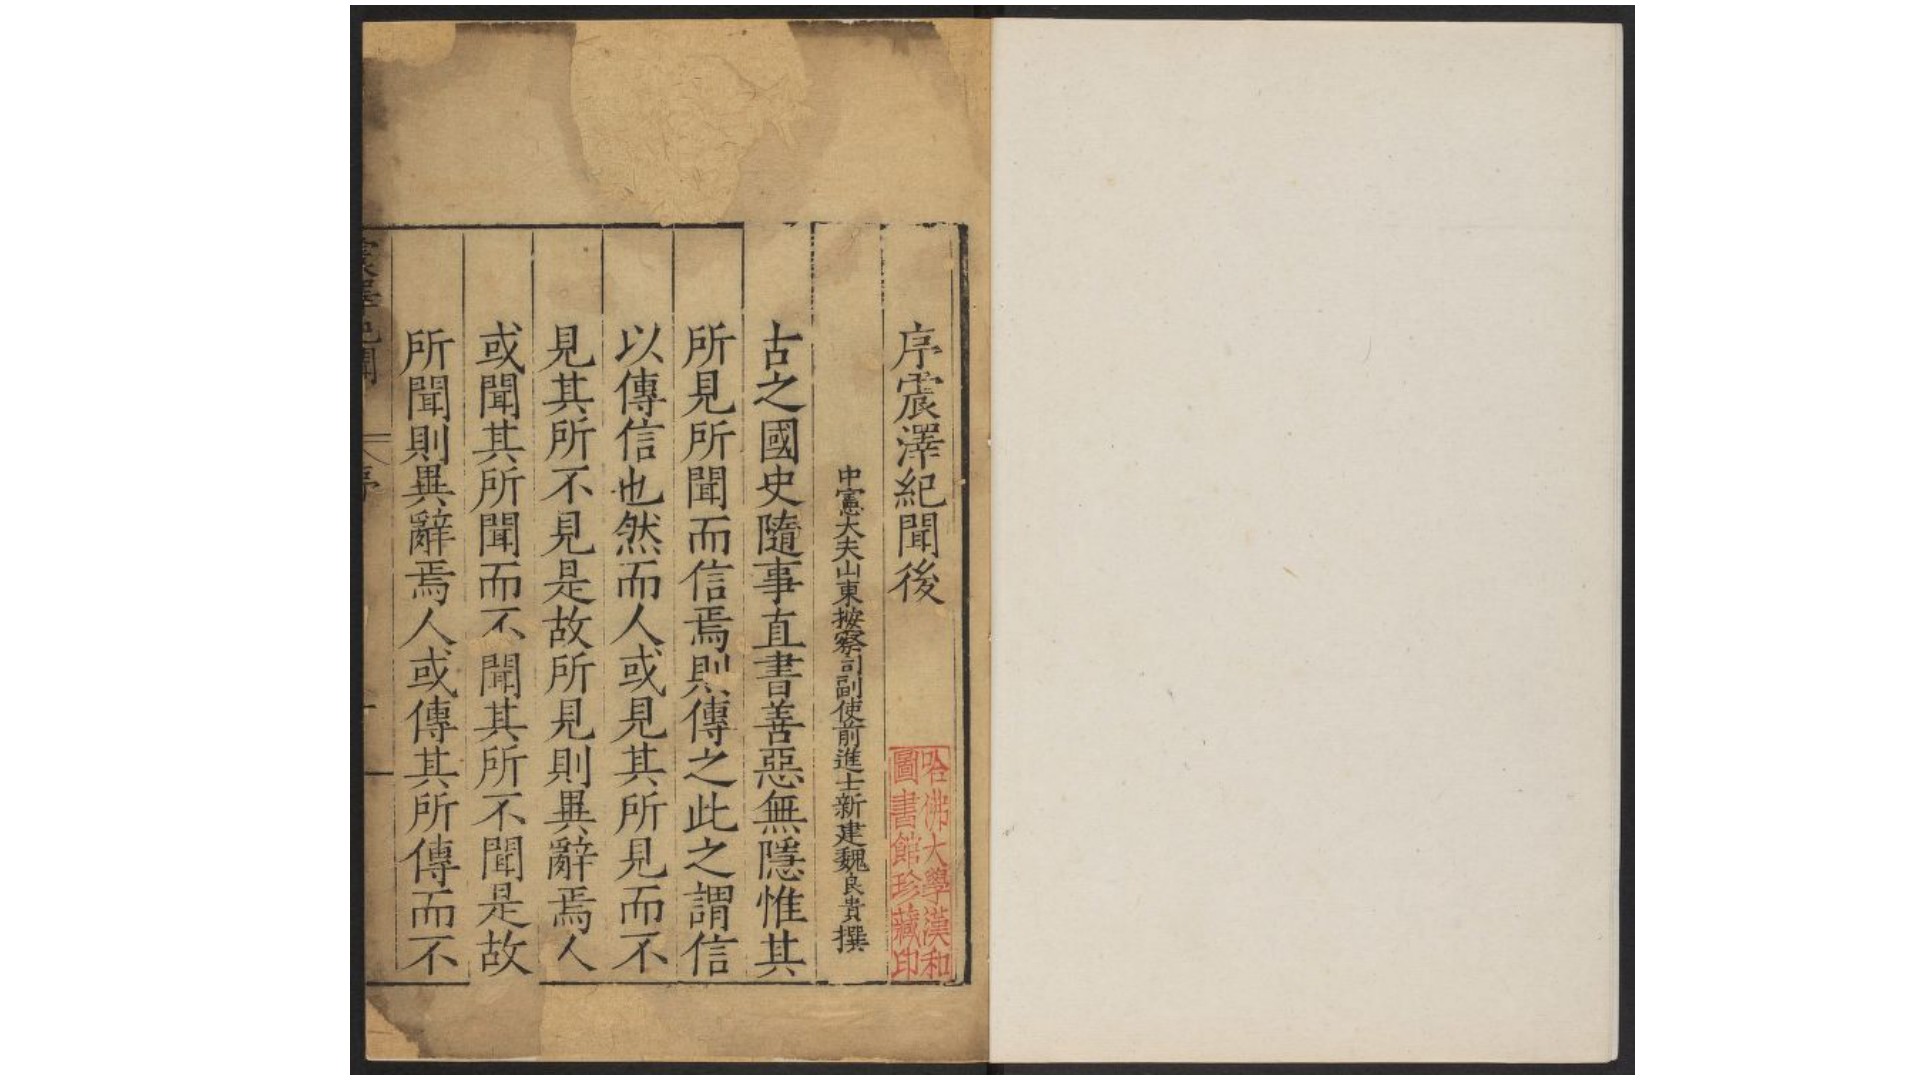 序震澤紀聞後
中憲大夫山東按察司副使前進士新建魏良貴撰
古之國史隨事直書善惡無隱惟其
所見所聞而信焉則傳之此之謂信
以傳信也然而人或見其所見而不
見其所不見是故所見則異辭焉人
或聞其所聞而不聞其所不聞是故
所聞則異辭焉人或傳其所傳而不
震澤紀聞
序
哈佛大學漢和
圖書館珍藏印